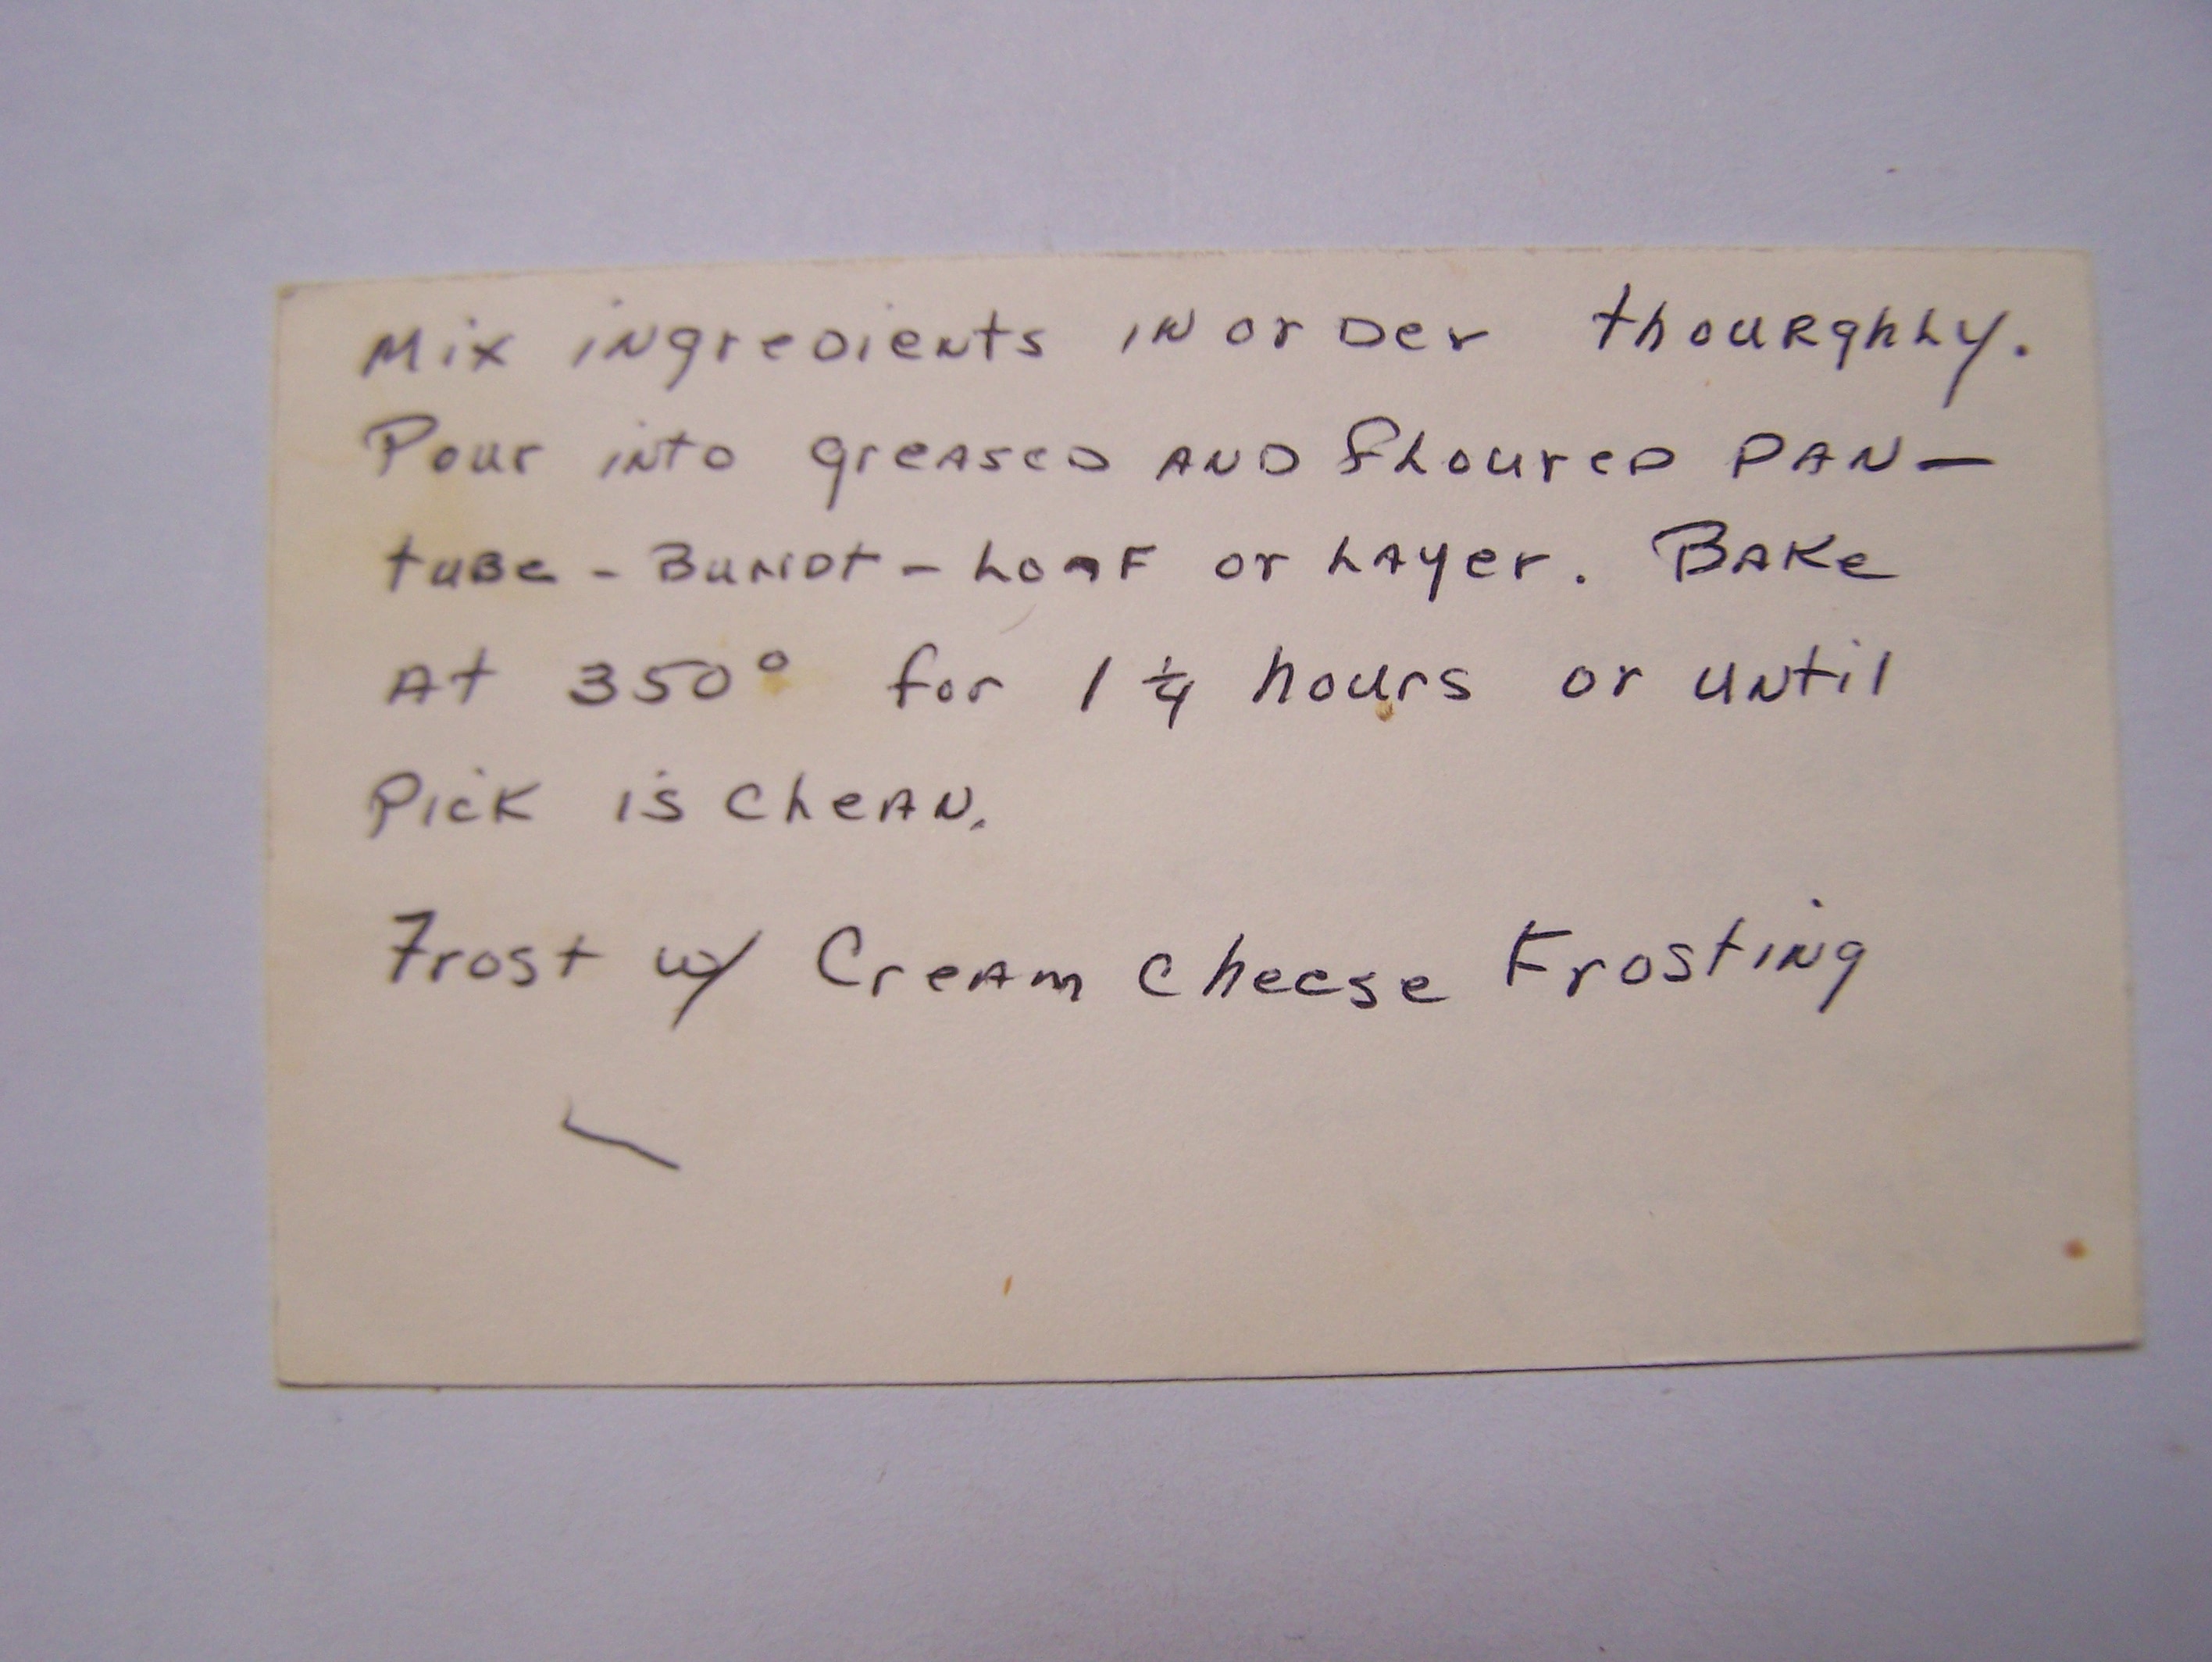 Mix ingredients in order thourghly.
Pour into greased and floured pan—
tube - Bundt - Loaf or Layer. Bake
At 350° for 1 1/4 hours or until
Pick is clean.
Frost w/ Cream cheese Frosting